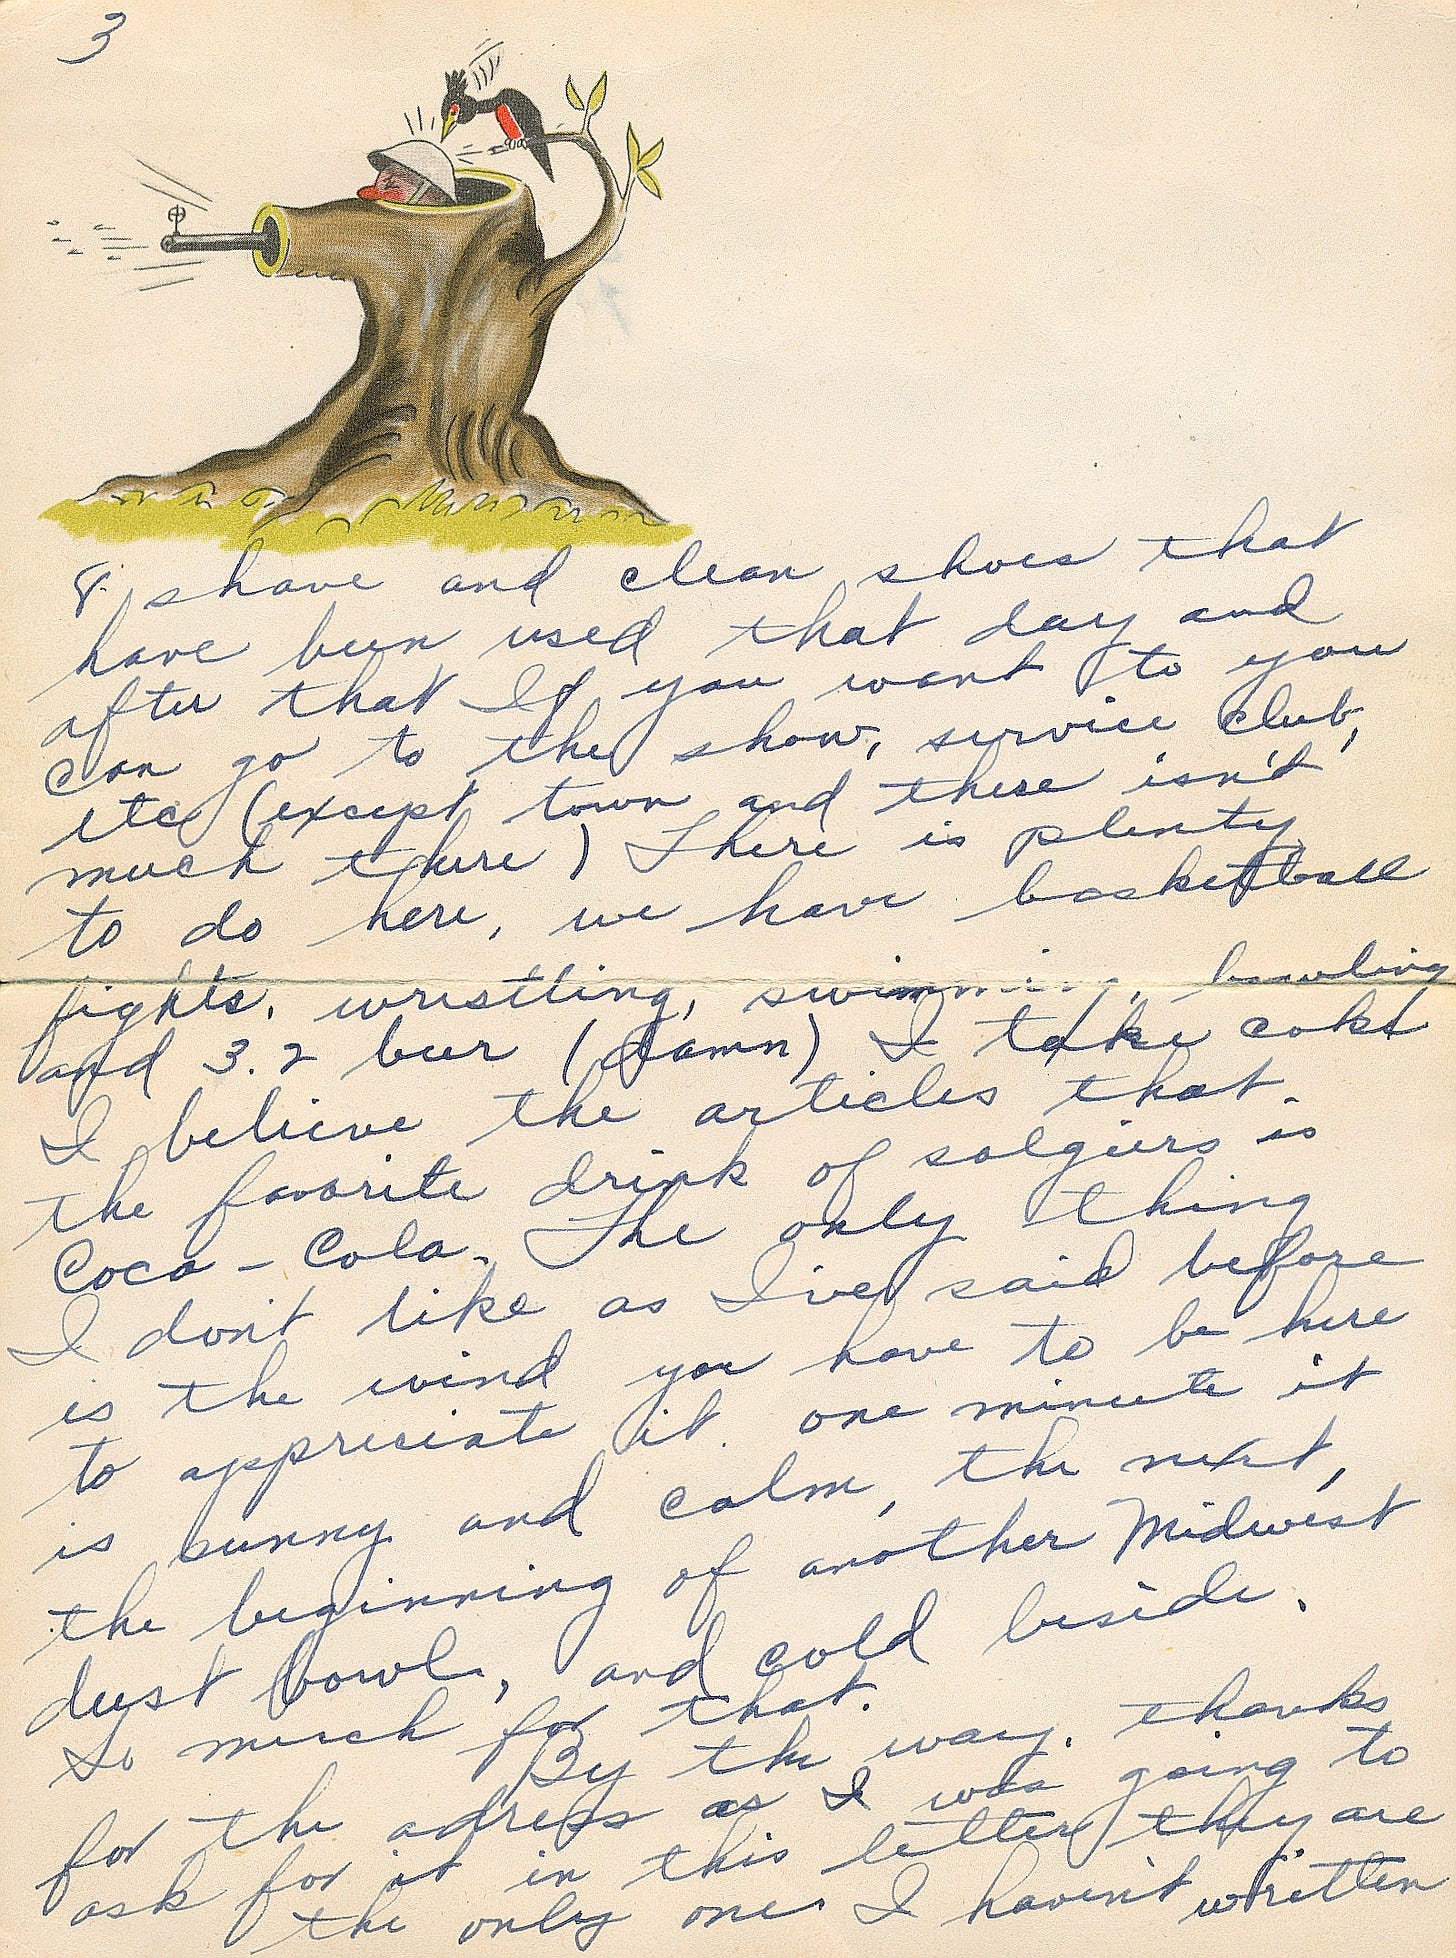 3
8. shave and clean shoes that
have been used that day and
after that If you want to you
can go to the show, service club,
etc (except town and there isn't
much there) There is plenty
to do here, we have basketball
fights, wrestling, swimming, bowling
and 3.2 beer (damn) I take coke
I believe the articles that
the favorite drink of solgiers is
Coca-Cola. The only thing
I don't like as I've said before
is the wind you have to be here
to appreciate it. one minute it
is sunny and calm, the next,
the beginning of another Midwest
dust bowl, and cold beside.
So much for that.
By the way. thanks
for the adress as I was going to
ask for it in this letter they are
the only ones I haven't written